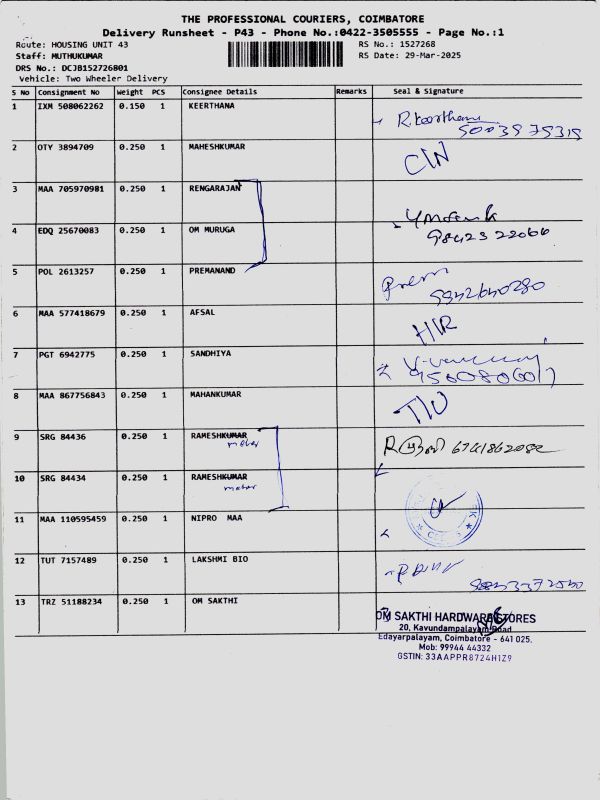 THE PROFESSIONAL COURIERS, COIMBATORE
Delivery Runsheet - P43 - Phone No.:0422-3505555 - Page No.:1
Route: HOUSING UNIT 43 RS No.: 1527268
Staff: MUTHUKUMAR RS Date: 29-Mar-2025
DRS No.: DCJB152726801
Vehicle: Two Wheeler Delivery
S No Consignment No Weight PCS Consignee Details Remarks Seal & Signature
1 IXM 508062262 0.150 1 KEERTHANA
2 OTY 3894709 0.250 1 MAHESHKUMAR
3 MAA 705970981 0.250 1 RENGARAJAN
4 EDQ 25670083 0.250 1 OM MURUGA
5 POL 2613257 0.250 1 PREMANAND
Prem
6 MAA 577418679 0.250 1 AFSAL
7 PGT 6942775 0.250 1 SANDHIYA
8 MAA 867756843 0.250 1 MAHANKUMAR
9 SRG 84436 0.250 1 RAMESHKUMAR
10 SRG 84434 0.250 1 RAMESHKUMAR
11 MAA 110595459 0.250 1 NIPRO MAA
12 TUT 7157489 0.250 1 LAKSHMI BIO
13 TRZ 51188234 0.250 1 OM SAKTHI
OM SAKTHI HARDWARE STORES
20, Kavundampalayam Road
Edayarpalayam, Coimbatore - 641 025.
Mob: 99944 44332
GSTIN: 33AAPPR8724H1Z9